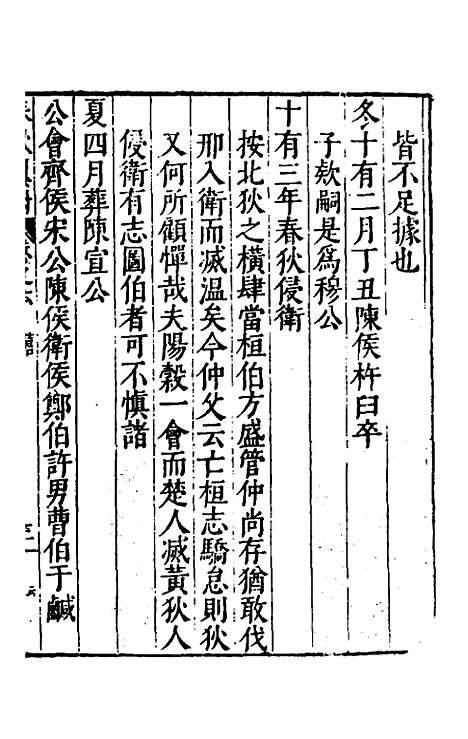 皆不足據也
冬十有二月丁丑陳侯杵臼卒
子欵嗣是爲穆公
十有三年春狄侵衛
按北狄之橫肆當桓伯方盛管仲尚存猶敢伐
邢入衛而滅温矣今仲父云亡桓志驕怠則狄
又何所顧憚哉夫陽穀一會而楚人滅黃狄人
侵衛有志圖伯者可不慎諸
夏四月葬陳宣公
公會齊侯宋公陳侯衛侯鄭伯許男曹伯于鹹